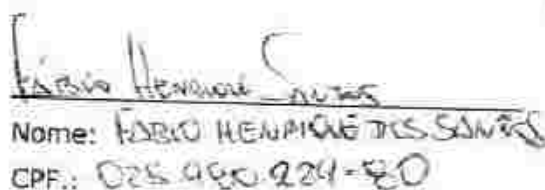 Fábio Henrique Santos
Nome: FABIO HENRIQUE DOS SANTOS
CPF.: